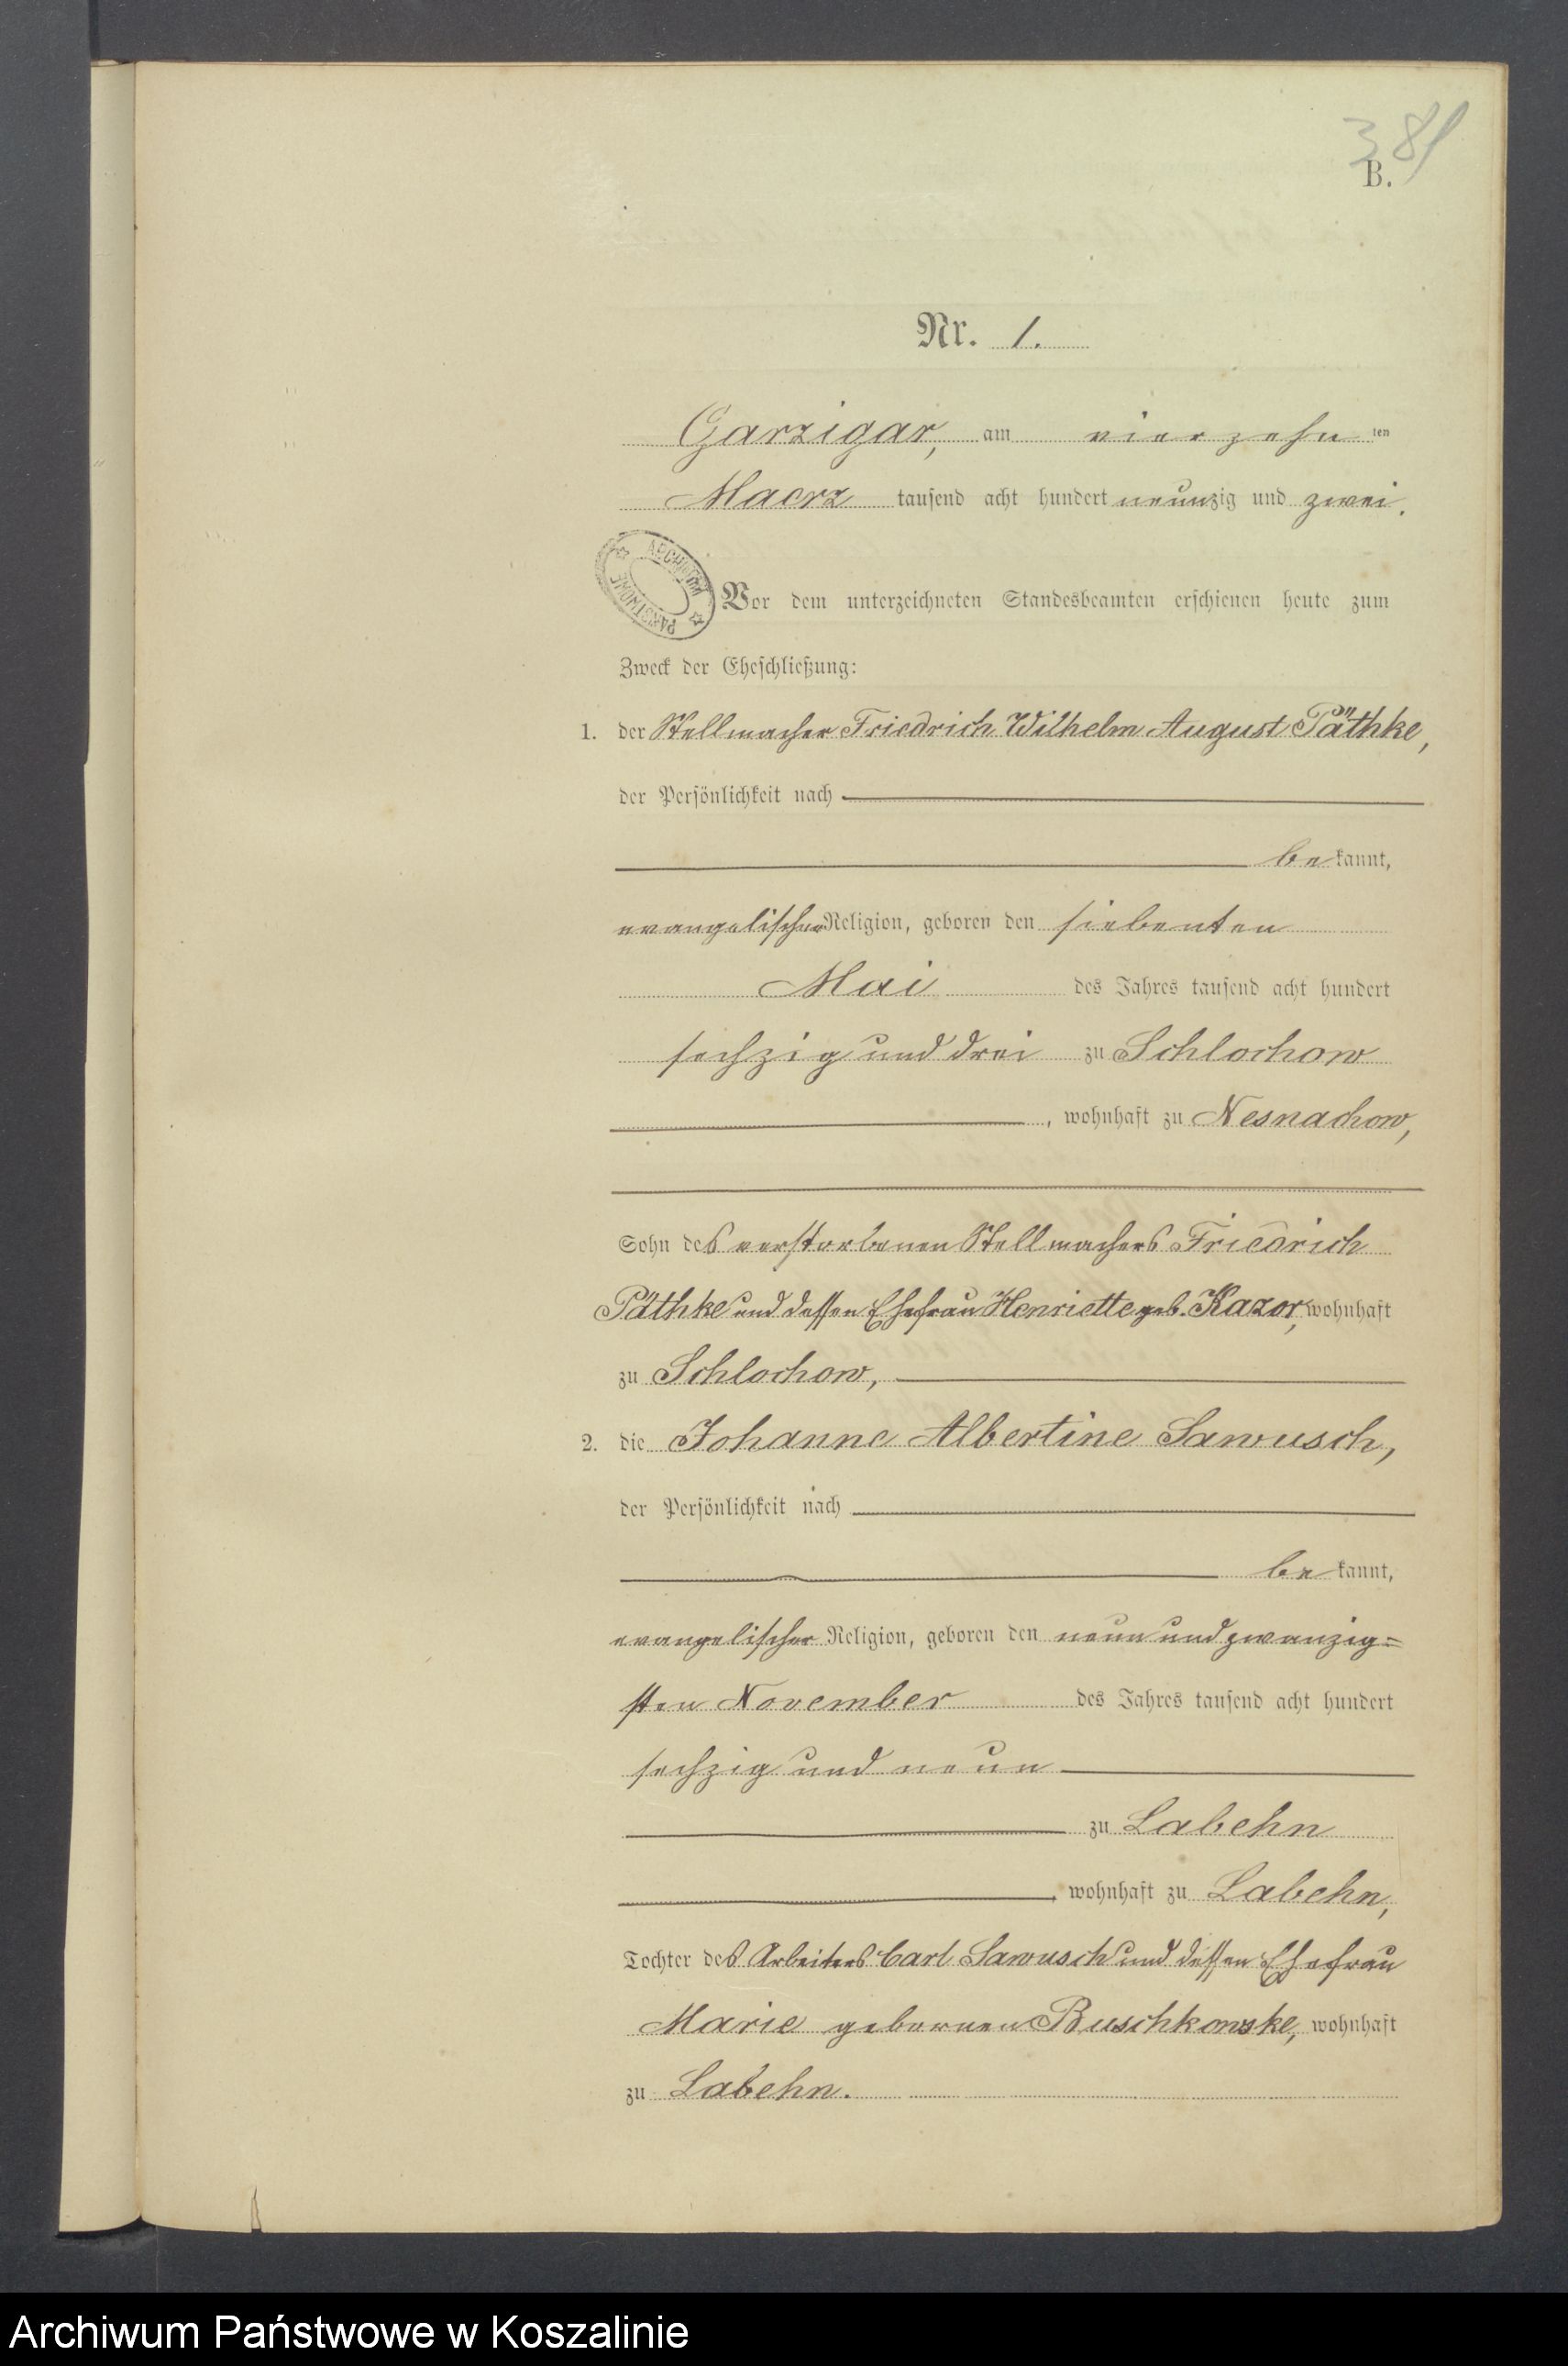 381
B.
Nr. 1.
Garzigar, am vierzehn ten
Maerz tausend acht hundert neunzig und zwei.
ARCHIWUM PAŃSTWOWE
Vor dem unterzeichneten Standesbeamten erschienen heute zum
Zweck der Eheschließung:
1. der Stellmacher Friedrich Wilhelm August Päthke,
der Persönlichkeit nach
be kannt,
evangelischer Religion, geboren den siebenten
Mai des Jahres tausend acht hundert
sechzig und drei zu Schlochow
, wohnhaft zu Nesnachow,
Sohn des verstorbenen Stellmachers Friedrich
Päthke und dessen Ehefrau Henriette geb. Kazor, wohnhaft
zu Schlochow,
2. die Johanne Albertine Sawusch,
der Persönlichkeit nach
be kannt,
evangelischer Religion, geboren den neun und zwanzig=
sten November des Jahres tausend acht hundert
sechzig und neun
zu Labehn
, wohnhaft zu Labehn,
Tochter des Arbeiters Carl Sawusch und dessen Ehefrau
Marie gebornen Buschkowske, wohnhaft
zu Labehn.
Archiwum Państwowe w Koszalinie